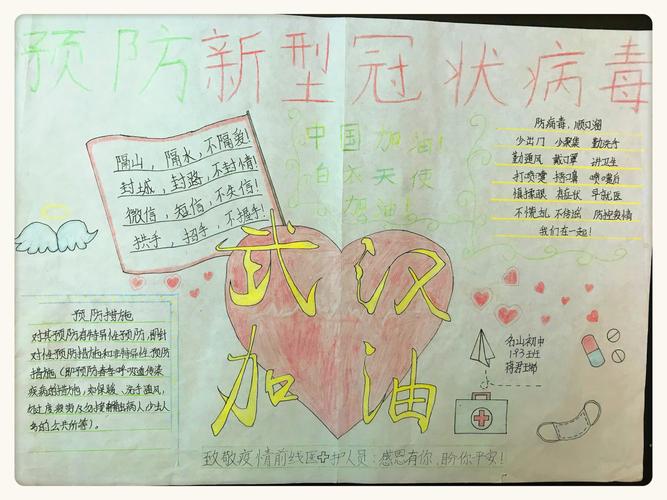 预防新型冠状病毒
中国加油!
白衣天使
加油!
隔山，隔水，不隔爱!
封城，封路，不封情!
微信，短信，不失信!
拱手，招手，不握手!
防病毒，顺口溜
少出门 少聚集 勤洗手
勤通风 戴口罩 讲卫生
打喷嚏 捂口鼻 喷嚏后
慎揉眼 有症状 早就医
不恐乱 不传谣 防控疫情
我们在一起!
武汉
加油
预防措施
对其预防有特异性预防，即针
对性预防措施和非特异性预防
措施（即预防春季呼吸道传染
疾病的措施，如保暖、洗手通风，
名山初中
193班
致敬疫情前线医护人员：感恩有你，盼你平安!